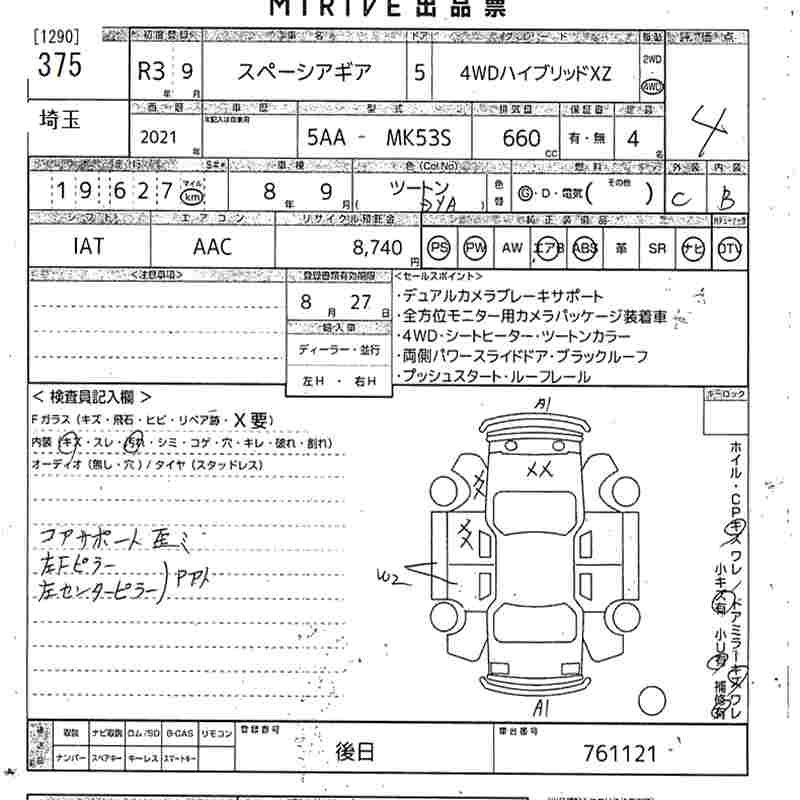 MIRIVE 出品票
[1290]
375
埼玉
初度登録
R3 9
年 月
車名
スペーシアギア
ドア
5
グレード
4WDハイブリッドXZ
駆動
2WD
4WD
評価点
4
西暦
2021
年
車歴
型式
5AA - MK53S
排気量
660
CC
有・無
定員
4
名
19,627
マイル
km
車検
8 年 9 月
色(Col No)
ツートン
( DYA )
色替
燃料
G・D・電気( その他 )
外装
C
内装
B
シフト
IAT
エアコン
AAC
リサイクル預託金
8,740 円
純正装備品
PS PW AW エアB ABS 革 SR ナビ DTV
<注意事項>
登録書類有効期限
8 月 27 日
輸入車
ディーラー・並行
左H ・ 右H
<セールスポイント>
・デュアルカメラブレーキサポート
・全方位モニター用カメラパッケージ装着車
・4WD・シートヒーター・ツートンカラー
・両側パワースライドドア・ブラックルーフ
・プッシュスタート・ルーフレール
< 検査員記入欄 >
Fガラス(キズ・飛石・ヒビ・リペア跡・X要)
内装(キズ・スレ・汚れ・シミ・コゲ・穴・キレ・破れ・割れ)
オーディオ(無し・穴)/タイヤ(スタッドレス)
コアサポート歪ミ
左Fピラー
左センターピラー
)PPイト
A1
XX
XX
XX
W2
A1
ホイル・CPキズ ワレ/ドアミラーキズ ワレ
小キズ有 小U有 補修有
取説 ナビ取説 ロム/SD B-CAS リモコン
ナンバー スペアキー キーレス スマートキー
登録番号
後日
車台番号
761121